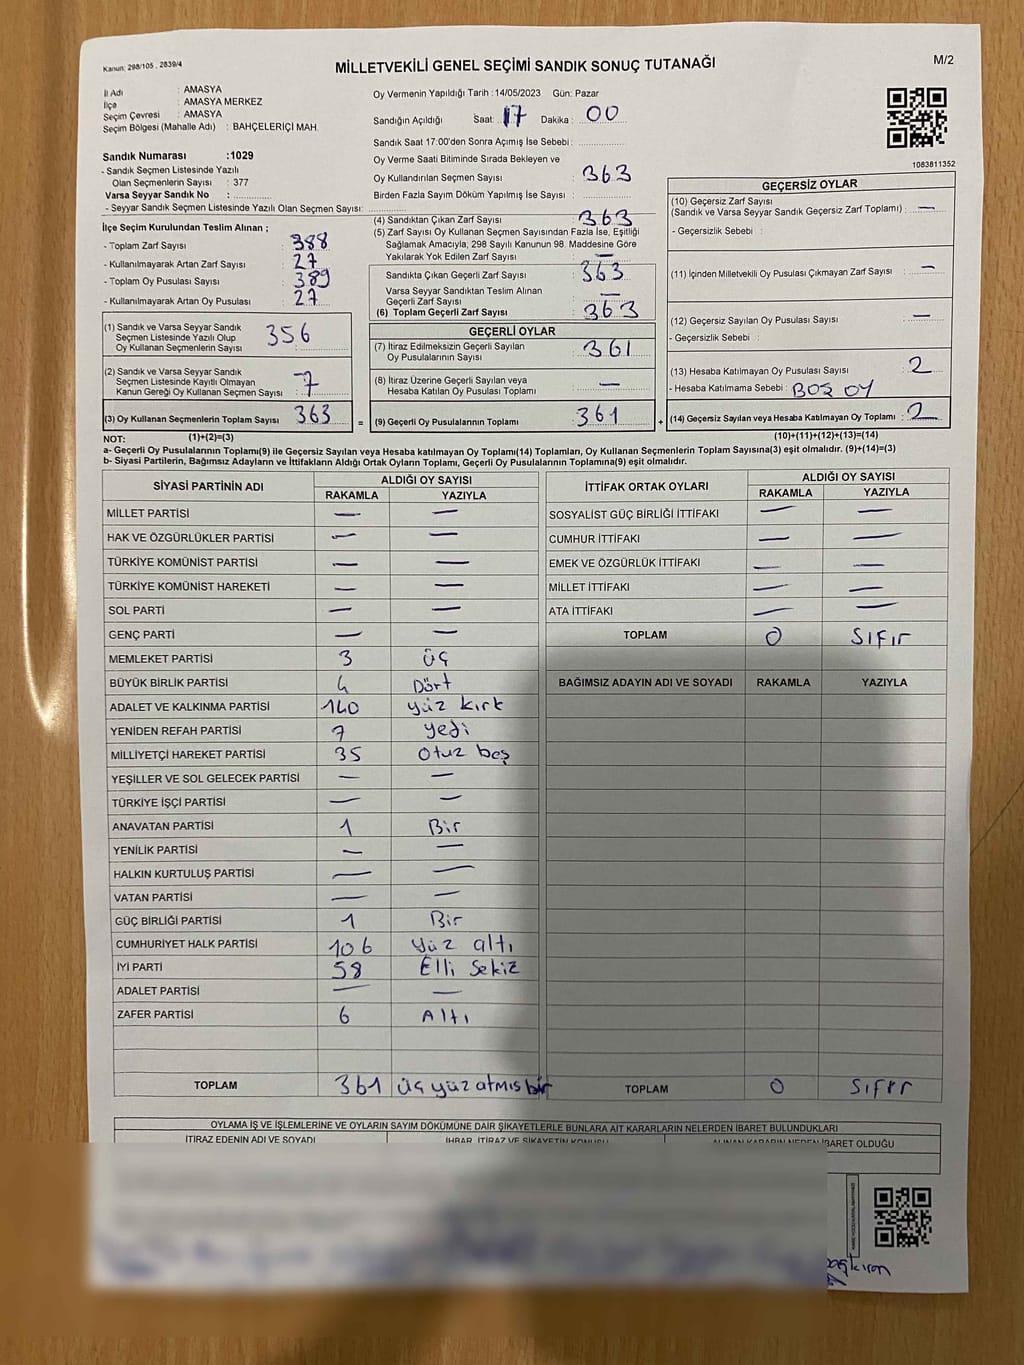 Kanun: 298/105 , 2839/4
MİLLETVEKİLİ GENEL SEÇİMİ SANDIK SONUÇ TUTANAĞI
M/2
İl Adı : AMASYA
İlçe : AMASYA MERKEZ
Seçim Çevresi : AMASYA
Seçim Bölgesi (Mahalle Adı) : BAHÇELERİÇİ MAH.
Sandık Numarası :1029
- Sandık Seçmen Listesinde Yazılı
Olan Seçmenlerin Sayısı : 377
Varsa Seyyar Sandık No :
- Seyyar Sandık Seçmen Listesinde Yazılı Olan Seçmen Sayısı:
İlçe Seçim Kurulundan Teslim Alınan ;
- Toplam Zarf Sayısı : 388
- Kullanılmayarak Artan Zarf Sayısı : 27
- Toplam Oy Pusulası Sayısı : 389
- Kullanılmayarak Artan Oy Pusulası : 27
(1) Sandık ve Varsa Seyyar Sandık
Seçmen Listesinde Yazılı Olup
Oy Kullanan Seçmenlerin Sayısı : 356
(2) Sandık ve Varsa Seyyar Sandık
Seçmen Listesinde Kayıtlı Olmayan
Kanun Gereği Oy Kullanan Seçmen Sayısı : 7
(3) Oy Kullanan Seçmenlerin Toplam Sayısı : 363
Oy Vermenin Yapıldığı Tarih :14/05/2023 Gün: Pazar
Sandığın Açıldığı Saat: 17 Dakika : 00
Sandık Saat 17:00'den Sonra Açımış İse Sebebi :
Oy Verme Saati Bitiminde Sırada Bekleyen ve
Oy Kullandırılan Seçmen Sayısı : 363
Birden Fazla Sayım Döküm Yapılmış İse Sayısı :
(4) Sandıktan Çıkan Zarf Sayısı : 363
(5) Zarf Sayısı Oy Kullanan Seçmen Sayısından Fazla İse, Eşitliği
Sağlamak Amacıyla, 298 Sayılı Kanunun 98. Maddesine Göre
Yakılarak Yok Edilen Zarf Sayısı : —
Sandıkta Çıkan Geçerli Zarf Sayısı : 363
Varsa Seyyar Sandıktan Teslim Alınan
Geçerli Zarf Sayısı : —
(6) Toplam Geçerli Zarf Sayısı : 363
GEÇERLİ OYLAR
(7) İtiraz Edilmeksizin Geçerli Sayılan
Oy Pusulalarının Sayısı : 361
(8) İtiraz Üzerine Geçerli Sayılan veya
Hesaba Katılan Oy Pusulası Toplamı : —
= (9) Geçerli Oy Pusulalarının Toplamı : 361 +
1083811352
GEÇERSİZ OYLAR
(10) Geçersiz Zarf Sayısı
(Sandık ve Varsa Seyyar Sandık Geçersiz Zarf Toplamı) : —
- Geçersizlik Sebebi :
(11) İçinden Milletvekili Oy Pusulası Çıkmayan Zarf Sayısı : —
(12) Geçersiz Sayılan Oy Pusulası Sayısı : —
- Geçersizlik Sebebi :
(13) Hesaba Katılmayan Oy Pusulası Sayısı : 2
- Hesaba Katılmama Sebebi : BOŞ OY
(14) Geçersiz Sayılan veya Hesaba Katılmayan Oy Toplamı : 2
NOT: (1)+(2)=(3) (10)+(11)+(12)+(13)=(14)
a- Geçerli Oy Pusulalarının Toplamı(9) ile Geçersiz Sayılan veya Hesaba katılmayan Oy Toplamı(14) Toplamları, Oy Kullanan Seçmenlerin Toplam Sayısına(3) eşit olmalıdır. (9)+(14)=(3)
b- Siyasi Partilerin, Bağımsız Adayların ve İttifakların Aldığı Ortak Oyların Toplamı, Geçerli Oy Pusulalarının Toplamına(9) eşit olmalıdır.
SİYASİ PARTİNİN ADI ALDIĞI OY SAYISI
RAKAMLA YAZIYLA
MİLLET PARTİSİ — —
HAK VE ÖZGÜRLÜKLER PARTİSİ — —
TÜRKİYE KOMÜNİST PARTİSİ — —
TÜRKİYE KOMÜNİST HAREKETİ — —
SOL PARTİ — —
GENÇ PARTİ — —
MEMLEKET PARTİSİ 3 üç
BÜYÜK BİRLİK PARTİSİ 4 Dört
ADALET VE KALKINMA PARTİSİ 140 yüz kırk
YENİDEN REFAH PARTİSİ 7 yedi
MİLLİYETÇİ HAREKET PARTİSİ 35 otuz beş
YEŞİLLER VE SOL GELECEK PARTİSİ — —
TÜRKİYE İŞÇİ PARTİSİ — —
ANAVATAN PARTİSİ 1 Bir
YENİLİK PARTİSİ — —
HALKIN KURTULUŞ PARTİSİ — —
VATAN PARTİSİ — —
GÜÇ BİRLİĞİ PARTİSİ 1 Bir
CUMHURİYET HALK PARTİSİ 106 yüz altı
İYİ PARTİ 58 Elli Sekiz
ADALET PARTİSİ — —
ZAFER PARTİSİ 6 Altı
TOPLAM 361 üç yüz atmış bir
İTTİFAK ORTAK OYLARI ALDIĞI OY SAYISI
RAKAMLA YAZIYLA
SOSYALİST GÜÇ BİRLİĞİ İTTİFAKI — —
CUMHUR İTTİFAKI — —
EMEK VE ÖZGÜRLÜK İTTİFAKI — —
MİLLET İTTİFAKI — —
ATA İTTİFAKI — —
TOPLAM 0 SIFIr
BAĞIMSIZ ADAYIN ADI VE SOYADI RAKAMLA YAZIYLA
TOPLAM 0 SIFIr
OYLAMA İŞ VE İŞLEMLERİNE VE OYLARIN SAYIM DÖKÜMÜNE DAİR ŞİKAYETLERLE BUNLARA AİT KARARLARIN NELERDEN İBARET BULUNDUKLARI
İTİRAZ EDENİN ADI VE SOYADI İHBAR, İTİRAZ VE ŞİKAYETİN KONUSU ALINAN KARARIN NEDEN İBARET OLDUĞU